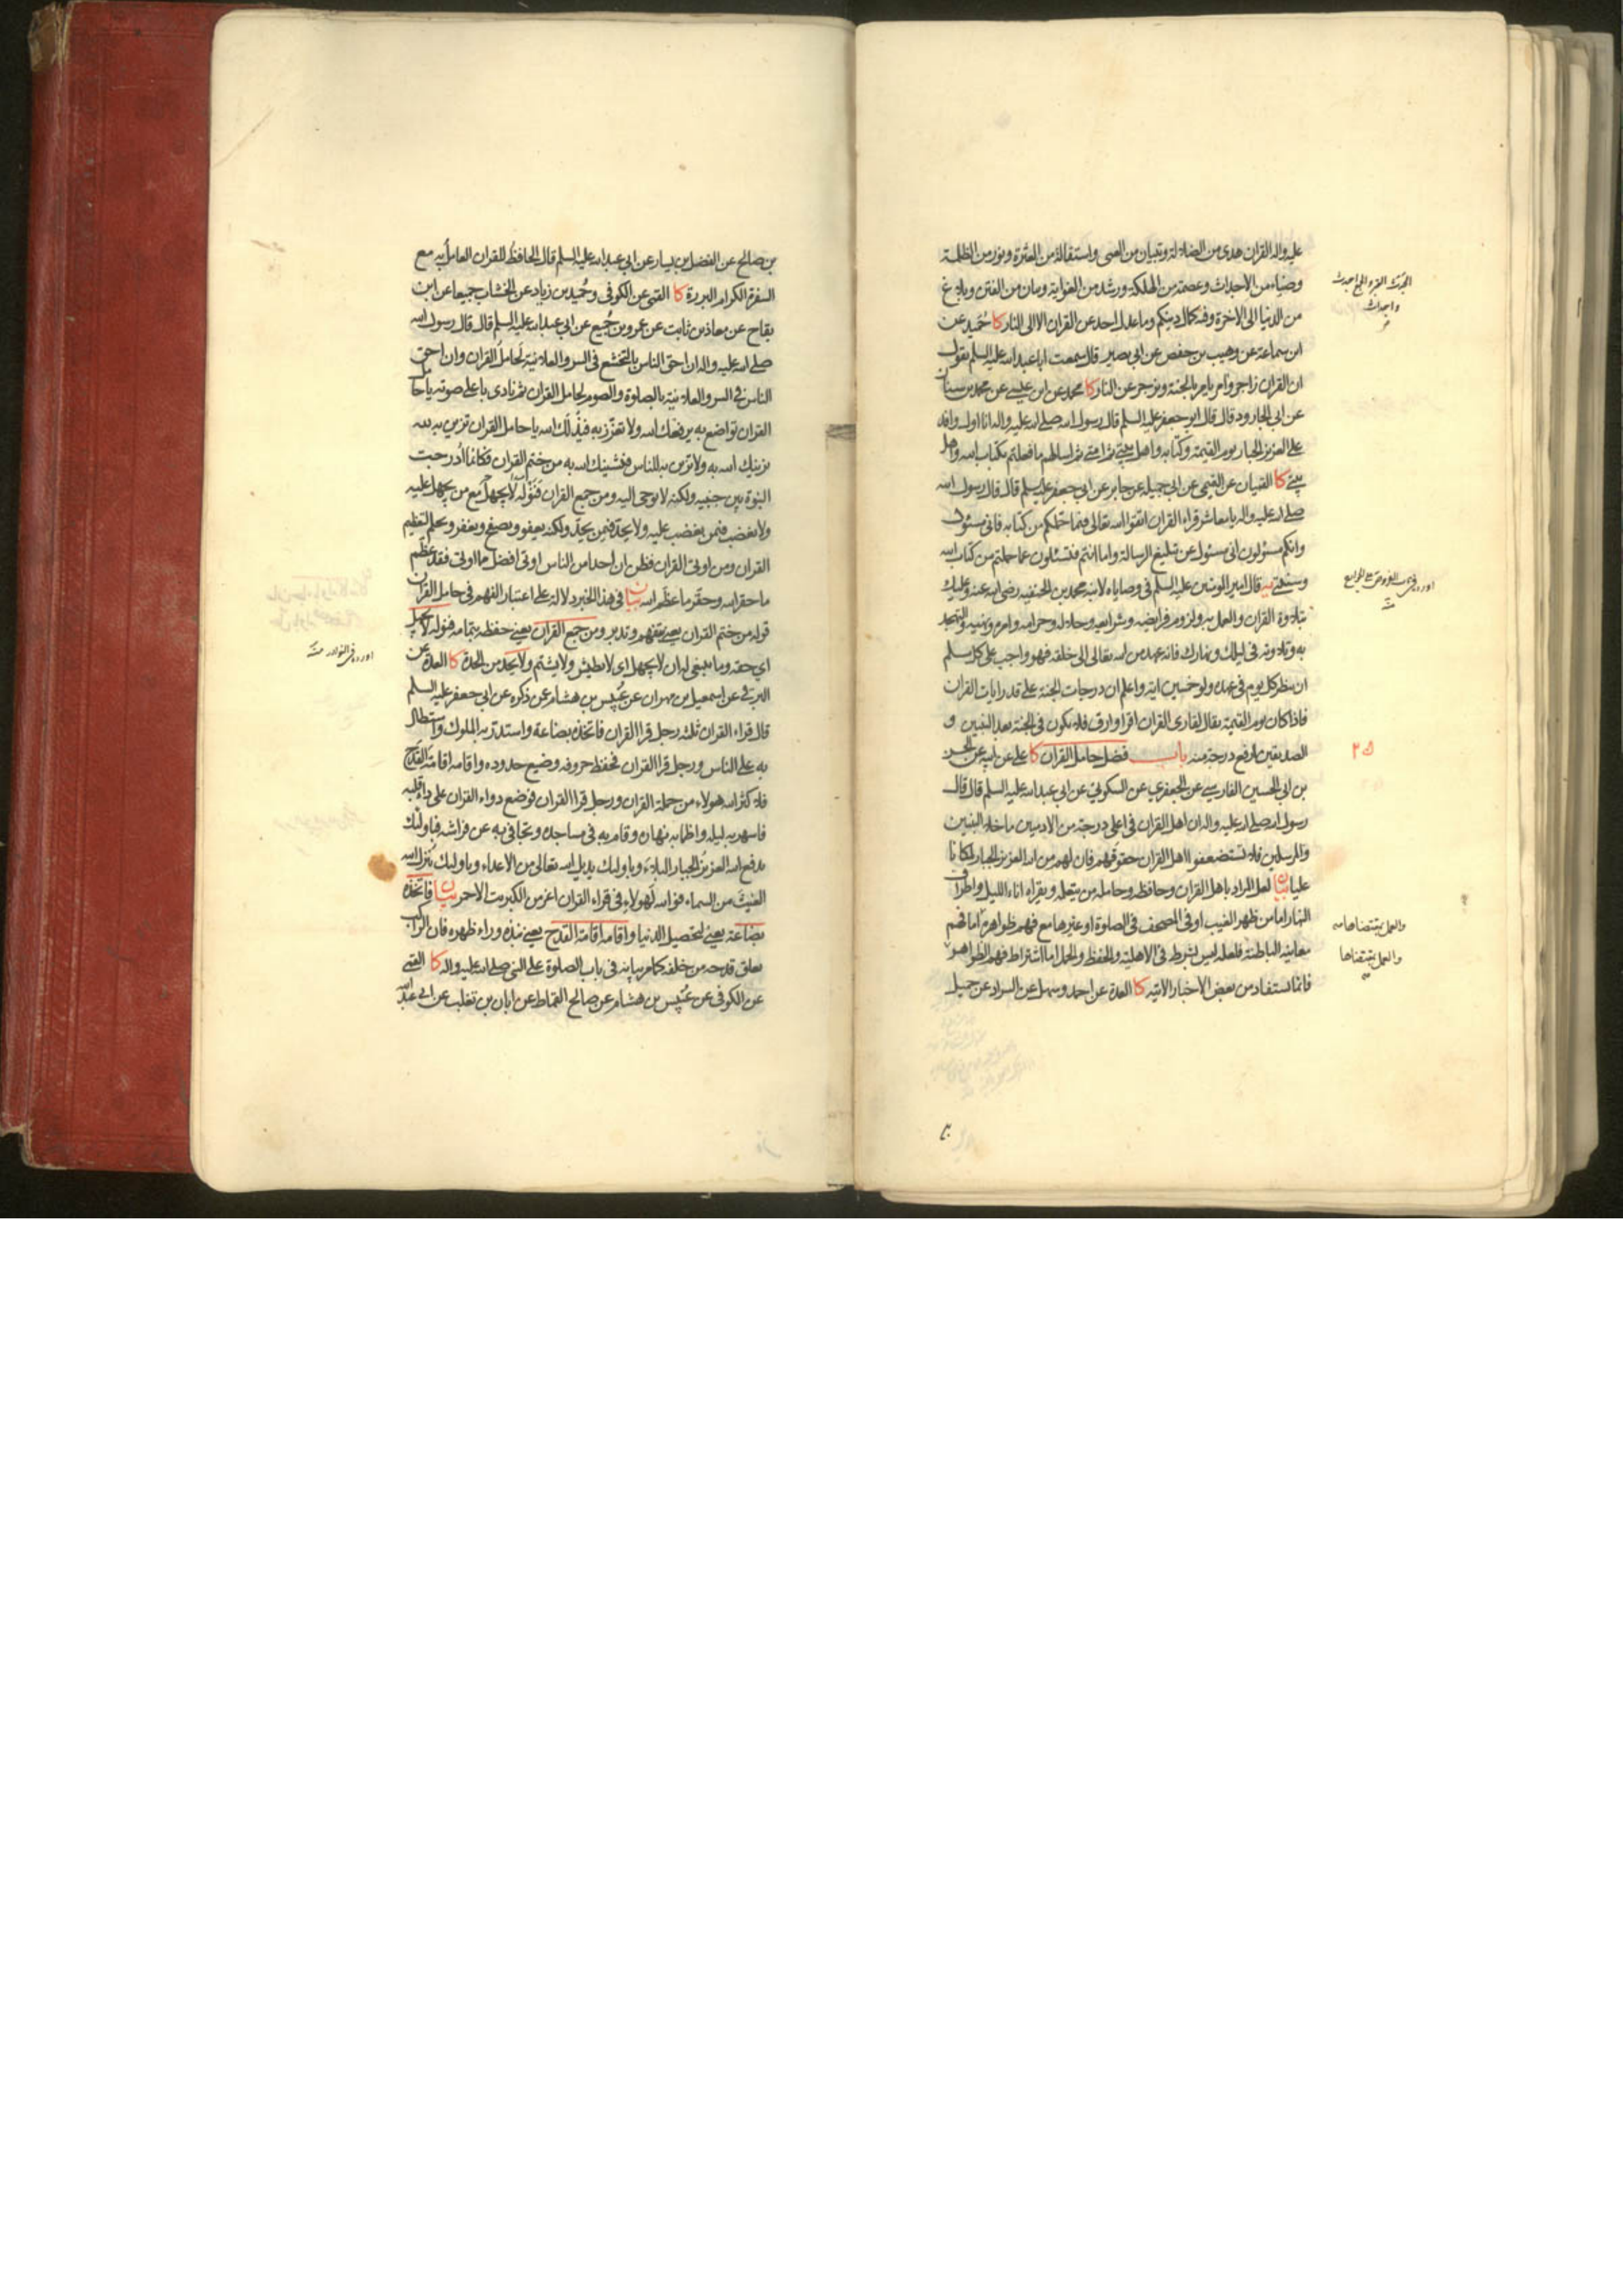 عليه واله القران هدى من الضلالة وتبيان من العمى واستقالة من العثرة ونور من الظلمة
وضياء من الاحداث وعصمة من الهلكة ورشد من الغواية وبيان من الفتن وبلاغ
من الدنيا الى الاخرة وفيه كمال دينكم وما عدل احد عن القران الا الى النار كا حميد عن
ابن سماعة عن وهيب بن حفص عن ابي بصير قال سمعت ابا عبد الله عليه السلم يقول
ان القران زاجر وامر يامر بالجنة ويزجر عن النار كا محمد عن ابن عيسى عن محمد بن سنان
عن ابي الجارود قال قال ابو جعفر عليه السلم قال رسول الله صلى الله عليه واله انا اول وافد
على العزيز الجبار يوم القيمة وكتابه واهل بيتي ثم امتي ثم اسالهم ما فعلتم بكتاب الله واهل
بيتي كا القميان عن التميمي عن ابي جميلة عن جابر عن ابي جعفر عليه السلم قال قال رسول الله
صلى الله عليه واله يا معاشر قراء القران اتقوا الله تعالى فيما حملكم من كتابه فاني مسئول
وانكم مسئولون اني مسئول عن تبليغ الرسالة واما انتم فتسئلون عما حملتم من كتاب الله
وسنتي يه قال امير المومنين عليه السلم في وصاياه لابنه محمد بن الحنفية رضي الله عنه وعليك
بتلاوة القران والعمل به ولزوم فرايضه وشرايعه وحلاله وحرامه وامره ونهيه والتهجد
به وتلاوته في ليلك ونهارك فانه عهد من الله تعالى الى خلقه فهو واجب على كل مسلم
ان ينظر كل يوم في عهده ولو خمسين اية واعلم ان درجات الجنة على قدر ايات القران
فاذا كان يوم القيمة يقال لقارى القران اقرا وارق فلا يكون في الجنة بعد النبيين و
الصديقين ارفع درجة منه باب فضل حامل القران كا علي عن ابيه عن الحسن
بن ابي الحسين الفارسي عن الجعفري عن السكوني عن ابي عبد الله عليه السلم قال قال
رسول الله صلى الله عليه واله ان اهل القران في اعلى درجة من الادميين ما خلا النبيين
والمرسلين فلا تستضعفوا اهل القران حقوقهم فان لهم من الله العزيز الجبار لمكانا
عليا بيان لعل المراد باهل القران وحافظه وحامله من يتعلمه ويقراه اناء الليل واطراف
النهار اما من ظهر الغيب او في المصحف في الصلوة او غيرها مع فهم ظواهره اما فهم
معانيه الباطنة فلعله ليس بشرط في الاهلية والحفظ والحمل اما اشتراط فهم الظواهر
فانما يستفاد من بعض الاخبار الاتية كا العدة عن احمد وسهل عن السراد عن جميل
والعمل بمقتضاها
والعمل بمقتضاها
بن صالح عن الفضل بن يسار عن ابي عبد الله عليه السلم قال الحافظ للقران العامل به مع
السفرة الكرام البررة كا القمي عن الكوفي وحميد بن زياد عن الخشاب جميعا عن ابن
بقاح عن معاذ بن ثابت عن عمرو بن جميع عن ابي عبد الله عليه السلم قال قال رسول الله
صلى الله عليه واله ان احق الناس بالتخشع في السر والعلانية لحامل القران وان احق
الناس في السر والعلانية بالصلوة والصوم لحامل القران ثم نادى باعلى صوته يا حامل
القران تواضع به يرفعك الله ولا تعزز به فيذلك الله يا حامل القران تزين به لله
يزينك الله به ولا تزين به للناس فيشينك الله به من ختم القران فكانما ادرجت
النبوة بين جنبيه ولكنه لا يوحى اليه ومن جمع القران فنوله لا يجهل مع من يجهل عليه
ولا يغضب فيمن يغضب عليه ولا يحد فيمن يحد ولكنه يعفو ويصفح ويغفر ويحلم لتعظيم
القران ومن اوتي القران فظن ان احدا من الناس اوتي افضل مما اوتي فقد عظم
ما حقر الله وحقر ما عظم الله بيان في هذا الخبر دلالة على اعتبار الفهم في حامل القران
قوله من ختم القران يعني بتفهم وتدبر ومن جمع القران يعني حفظه بتمامه فنوله لا يجهل
اي حقه وما ينبغي له ان لا يجهل اي لا يطيش ولا يشتم ولا يحد من الحدة كا العدة عن
البرقي عن اسمعيل بن مهران عن عبيس بن هشام عمن ذكره عن ابي جعفر عليه السلم
قال قراء القران ثلثة رجل قرا القران فاتخذه بضاعة واستدر به الملوك واستطال
به على الناس ورجل قرا القران فحفظ حروفه وضيع حدوده واقامه اقامة القدح
فلا كثر الله هولاء من حملة القران ورجل قرا القران فوضع دواء القران على داء قلبه
فاسهر به ليله واظما به نهاره وقام به في مساجده وتجافى به عن فراشه فباولئك
يدفع الله العزيز الجبار البلاء وباولئك يديل الله تعالى من الاعداء وباولئك ينزل الله
الغيث من السماء فوالله لهولاء في قراء القران اعز من الكبريت الاحمر بيان فاتخذه
بضاعة يعني لتحصيل الدنيا واقامه اقامة القدح يعني نبذه وراء ظهره فان الراكب
يعلق قدحه من خلفه كما مر بيانه في باب الصلوة على النبي صلى الله عليه واله كا القمي
عن الكوفي عن عبيس بن هشام عن صالح القماط عن ابان بن تغلب عن ابي عبد الله